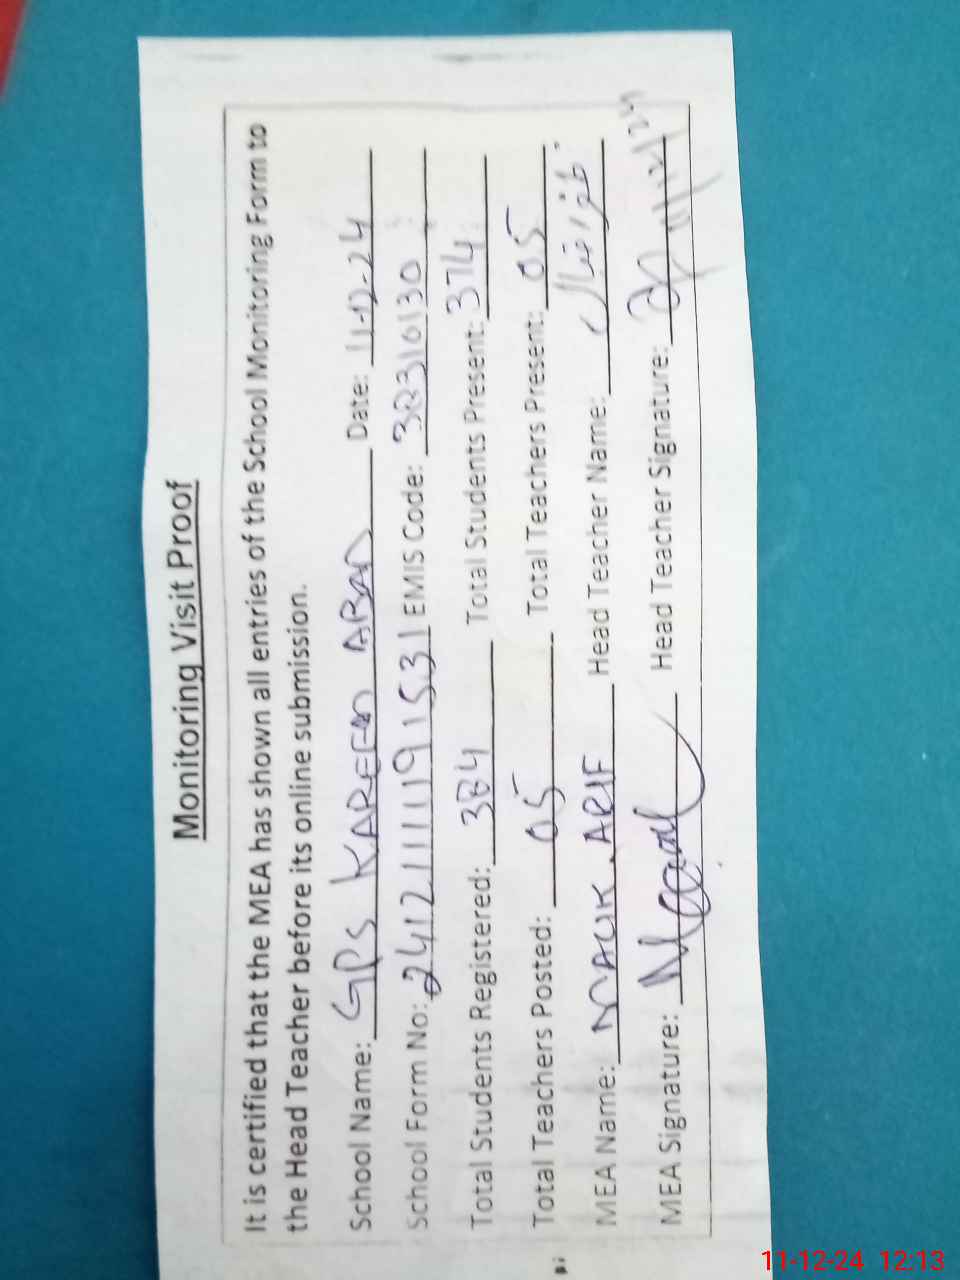 Monitoring Visit Proof
It is certified that the MEA has shown all entries of the School Monitoring Form to
the Head Teacher before its online submission.
School Name: GPS KAREEM ABAD Date: 11-12-24
School Form No: 24121111191531 EMIS Code: 38310130
Total Students Registered: 384 Total Students Present: 374
Total Teachers Posted: 05 Total Teachers Present: 05
MEA Name: MALIK ARIF Head Teacher Name:
MEA Signature: Head Teacher Signature: 11/12/24
11-12-24 12:13